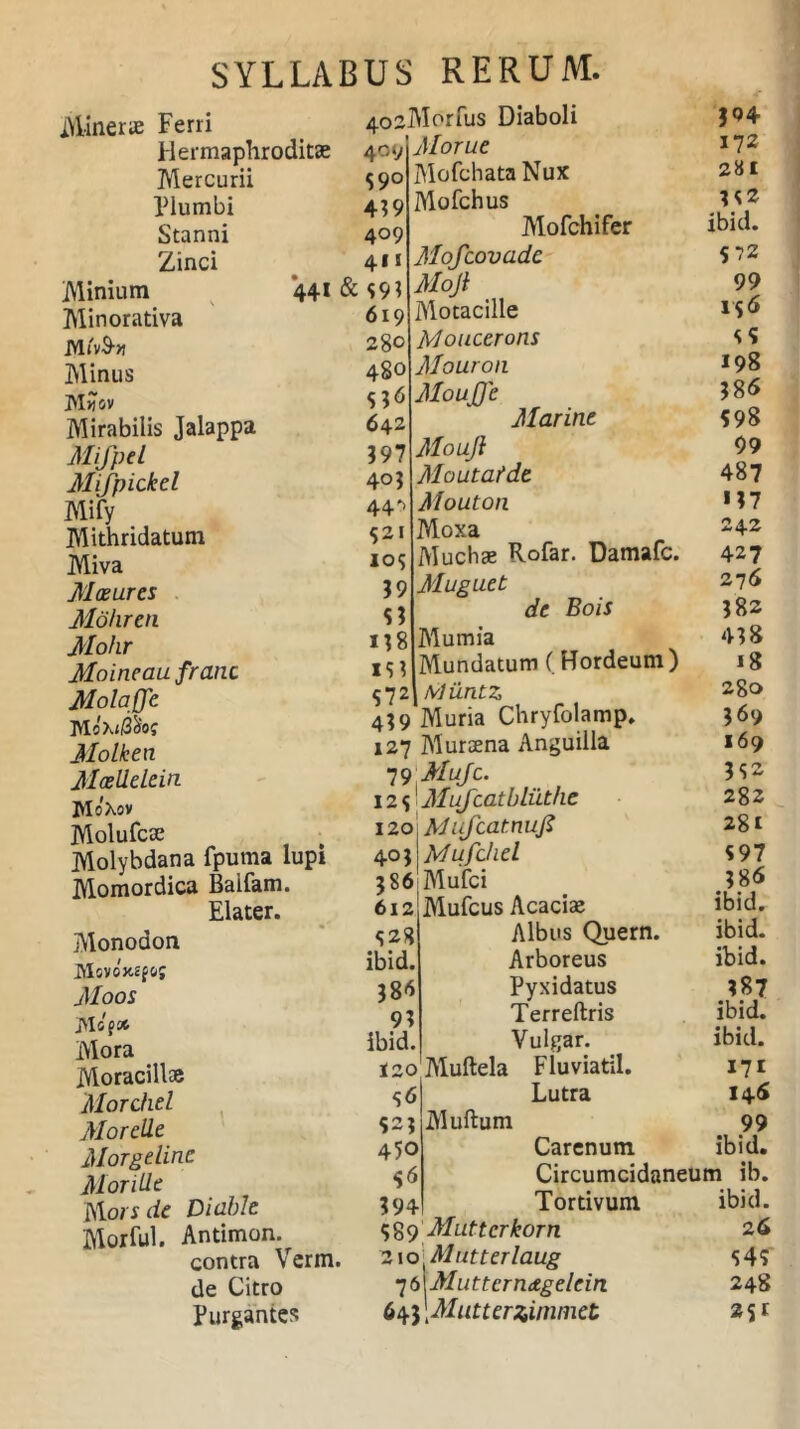 SYLLABUS RERUM.
Mineræ Ferri 402
Hermaphroditæ 409
Mercurii 590
Plumbi 439
Stanni 409
Zinci 411
Minium 441 & 593
Minorativa 619
Μίνϑη 280
Minus 480
Μῆον 536
Mirabilis Jalappa 642
Miſpel 397
Miſpickel 403
Miſy 440
Mithridatum 521
Miva 105
Mœures 39
Möhren 53
Mohr 138
Moineau franc 153
Molaſſe 572
Μόλιβδος 439
Molken 127
Mœllelein 79
Μόλον 125
Moluſcæ 120
Molybdana ſpuma lupi 403
Momordica Balſam. 386
Elater. 612
Monodon 528
Μονόκερος ibid.
Moos 386
Μόρα 93
Mora ibid.
Moracillæ 120
Morchel 56
Morelle 523
Morgeline 450
Morille 56
Mors de Diable 394
Morſul. Antimon. 589
contra Verm. 210
de Citro 76
Purgantes 643
Morſus Diaboli 394
Morue 172
Moſchata Nux 281
Moſchus 352
Moſchifer ibid.
Moſcovade 572
Moſt 99
Motacille 156
Moucerons 55
Mouron 198
Mouſſe 386
Marine 598
Mouſt 99
Moutarde 487
Mouton 137
Moxa 242
Muchæ Roſar. Damaſc. 427
Muguet 276
de Bois 382
Mumia 438
Mundatum (Hordeum) 18
Müntz 280
Muria Chryſolamp. 369
Muræna Anguilla 169
Muſc. 352
Muſcatblüthe 282
Muſcatnuß 281
Muſchel 597
Muſci 386
Muſcus Acaciæ ibid.
Albus Quern. ibid.
Arboreus ibid.
Pyxidatus 387
Terreſtris ibid.
Vulgar. ibid.
Muſtela Fluviatil. 171
Lutra 146
Muſtum 99
Carenum ibid.
Circumcidaneum ib.
Tortivum ibid.
Mutterkorn 26
Mutterlaug 545
Mutternægelein 248
Mutterzimmet 251